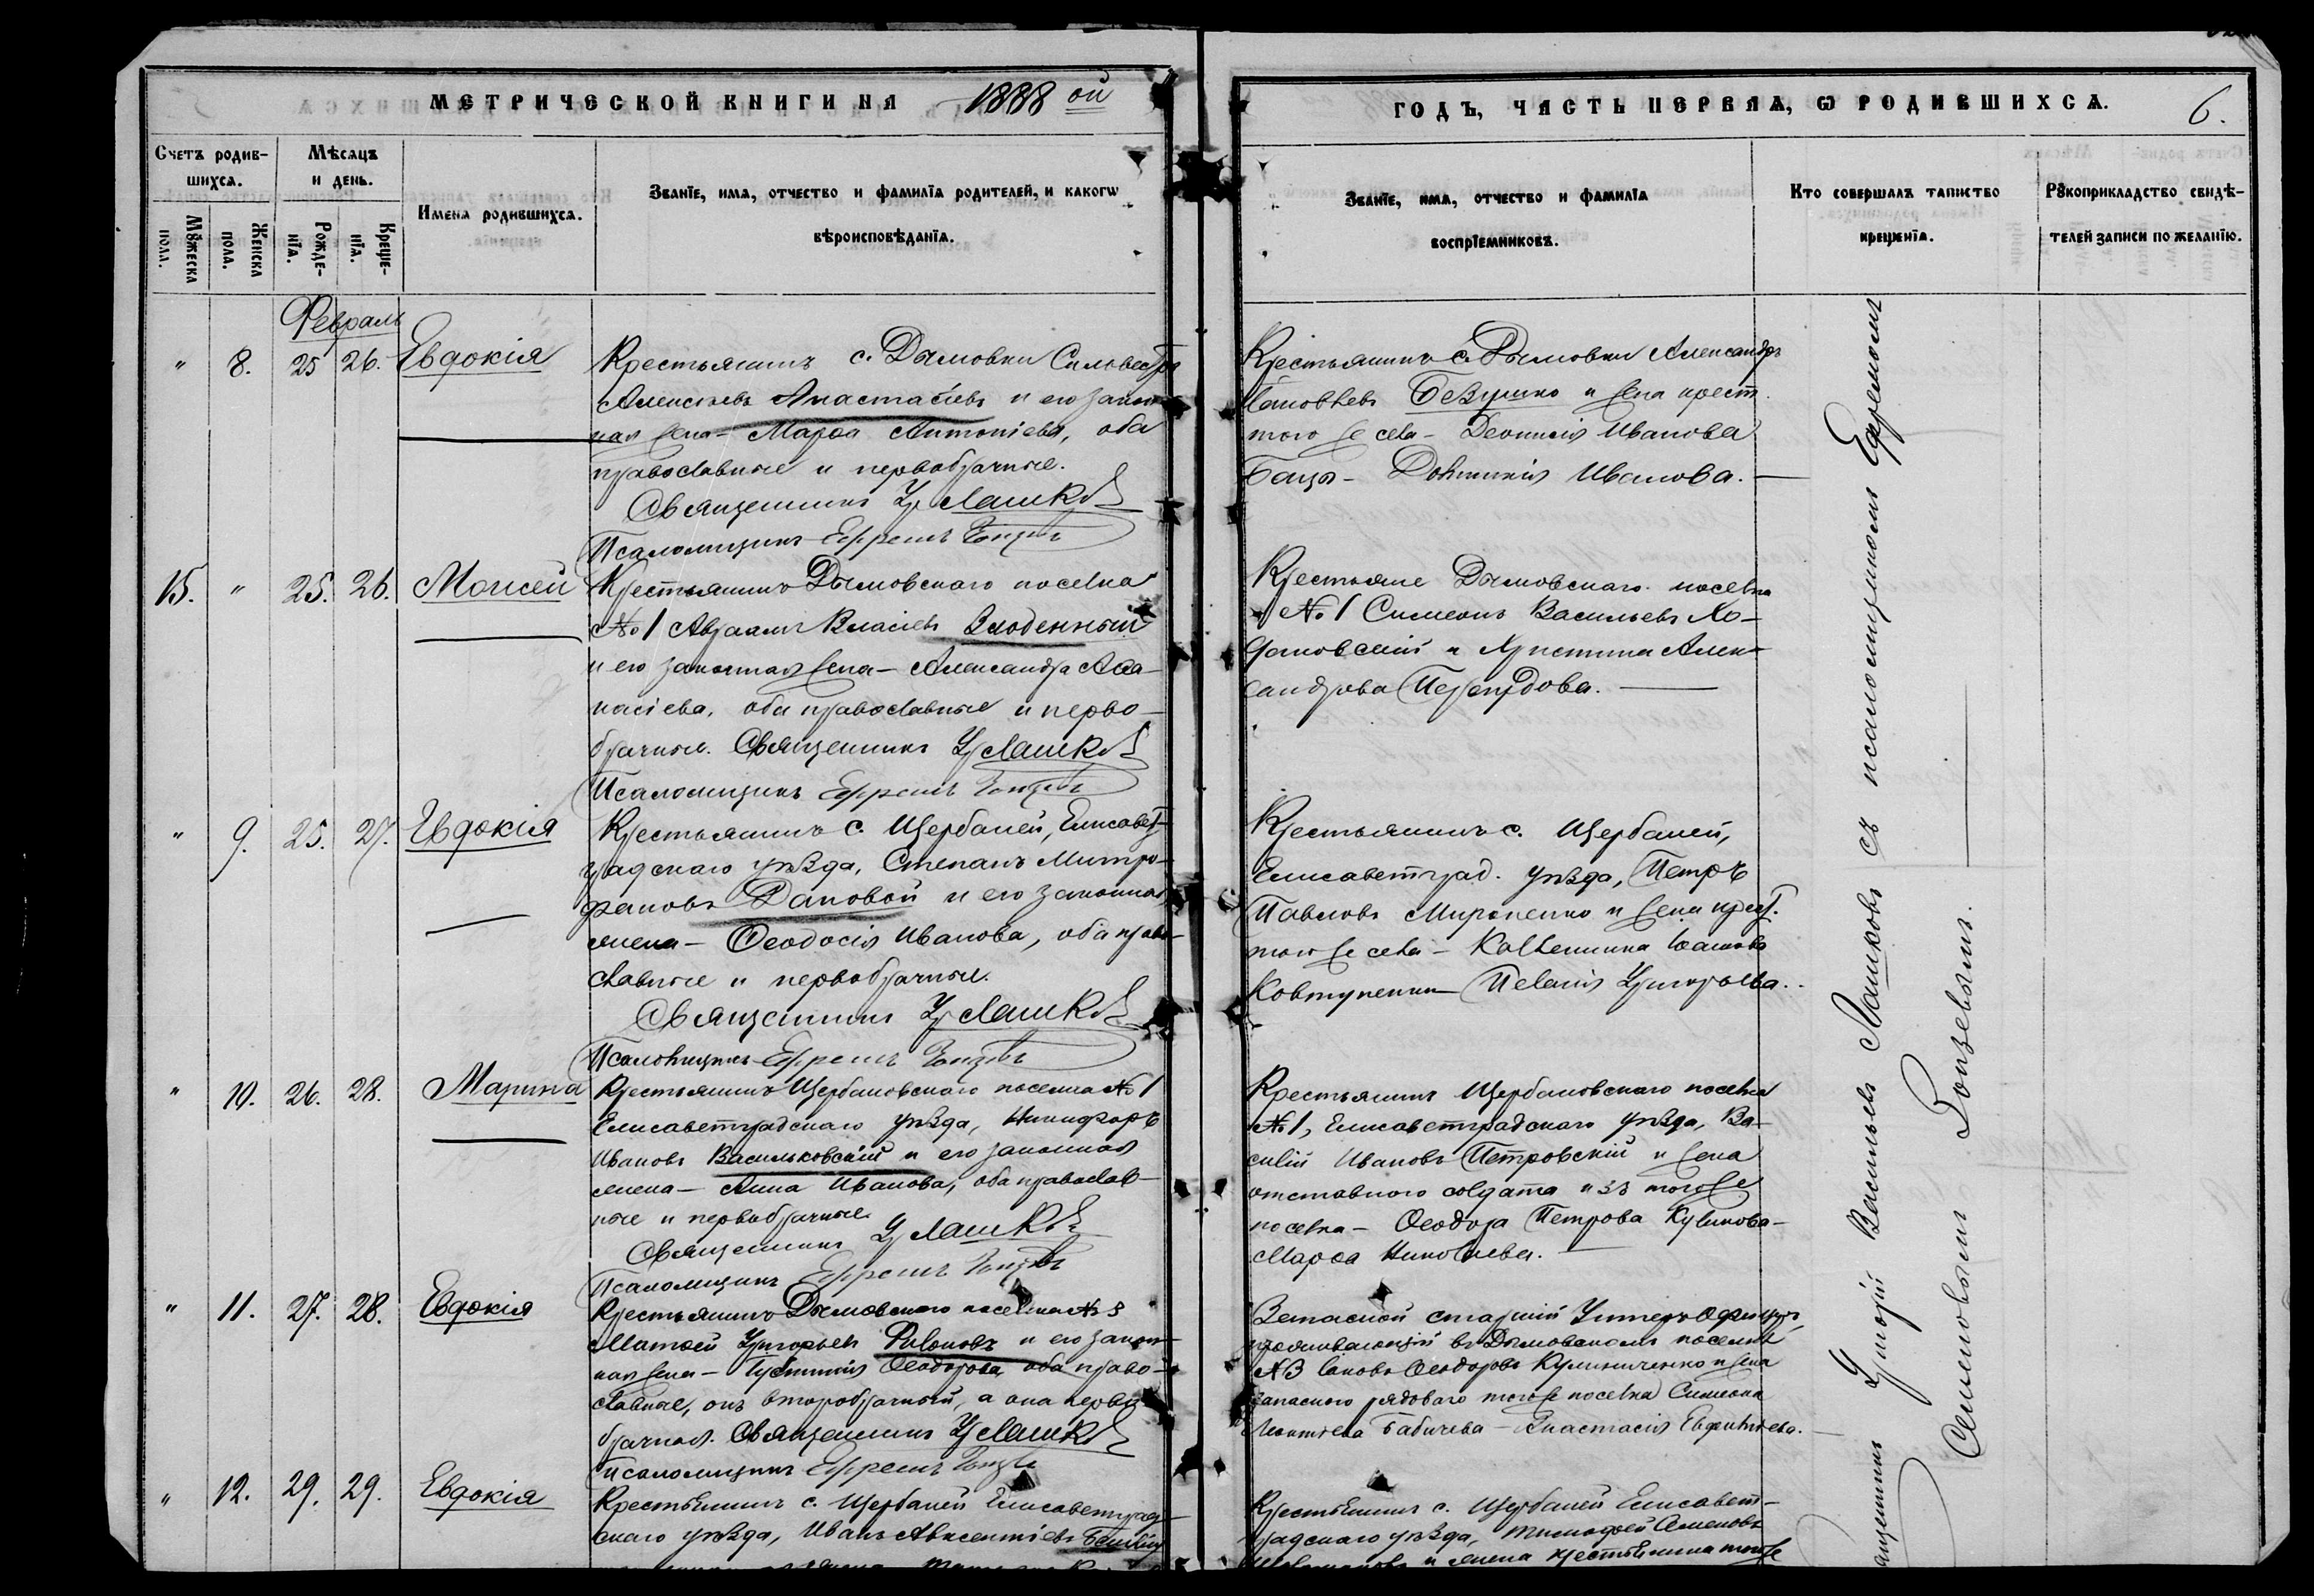 МЕТРИЧЕСКОЙ КНИГИ НА 1888 ой
ГОДЪ, ЧАСТЬ ПЕРВАЯ, Ѡ РОДИВШИХСѦ.
6.
Счетъ родив-
шихсѧ.
Мѣсѧцъ
и день.
Имена родившихсѧ.
Званїе, имѧ, отчество и фамилїа родителей, и какогѡ
вѣроисповѣданїа.
Мꙋжеска
пола.
Женска
пола.
Рожде-
нїа.
Креще-
нїа.
Званїе, имѧ, отчество и фамилїа
воспрїемниковъ.
Кто совершалъ таинство
крещенїа.
Рꙋкоприкладство свидѣ-
телей записи по желанїю.
Февраль
" 8. 25 26. Евдокія
Крестьянинъ с. Дымовки Силовестръ
Алексѣевъ Анастасіевъ и его закон-
ная жена - Марѳа Антоніева, оба
православные и первобрачные.
Священникъ Гр Лашковъ
Псаломщикъ Ефремъ
Крестьянинъ с. Дымовки Александръ
Іаковлевъ и жена крест.
того же села - Деонисія Иванова
Домникія Иванова.
15. " 25. 26. Моисей
Крестьянинъ Дымовскаго поселка
№ 1 Авраамъ Власіевъ Злоденный
и его законная жена - Александра Аѳа-
насіева, оба православные и перво-
брачные. Священникъ Гр Лашковъ
Псаломщикъ Ефремъ
Крестьяне Дымовскаго поселка
№ 1 Симеонъ Васильевъ Хо-
дановскій и Христина Алек-
сандрова
" 9. 25. 27. Евдокія
Крестьянинъ с. Щербаней, Елисавет-
градскаго уѣзда, Стефанъ Митро-
фановъ Дановой и его законная
жена - Ѳеодосія Иванова, оба право-
славные и первобрачные.
Священникъ Гр Лашковъ
Псаломщикъ Ефремъ
Крестьянинъ с. Щербаней,
Елисаветград. уѣзда, Петръ
Павловъ Мироненко и жена крест.
того же села - Каллиника Іоаннова
Ковтуненки - Пелагія Григорьева.
" 10. 26. 28. Марина
Крестьянинъ Щербановскаго поселка № 1
Елисаветградскаго уѣзда, Никифоръ
Ивановъ Васильковскій и его законная
жена - Анна Иванова, оба православ-
ные и первобрачные.
Священникъ Гр Лашковъ
Псаломщикъ Ефремъ
Крестьянинъ Щербановскаго поселка
№ 1, Елисаветградскаго уѣзда, Ва-
силій Ивановъ Петровскій и жена
отставного солдата изъ того же
поселка - Ѳеодора Петрова Куликова -
Марѳа Николаева.
" 11. 27. 28. Евдокія
Крестьянинъ Дымовскаго поселка № 3
Матѳей Григорьевъ и его закон-
ная жена - Іустинія Ѳеодорова, оба право-
славные, онъ второбрачный, а она перво-
брачная. Священникъ Гр Лашковъ
Псаломщикъ Ефремъ
Запасной старшій Унтеръ офицеръ,
проживающій въ Дымовскомъ поселкѣ
№ 3 Іаковъ Ѳеодоровъ Кулиниченко и жена
запасного рядоваго того же поселка Симеона
Леонтіева Бабичева - Анастасія Евфиміева.
" 12. 29. 29. Евдокія
Крестьянинъ с. Щербаней Елисаветград-
скаго уѣзда, Иванъ Авксентіевъ
Крестьянинъ с. Щербаней Елисавет-
градскаго уѣзда, Тимофей Семеновъ
и жена крестьянина того же
Григорій Васильевъ Лашковъ съ псаломщикомъ Ефремомъ
Семеновымъ